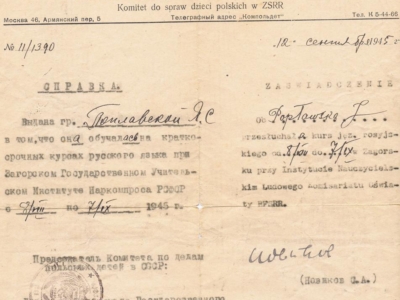 Komitet do spraw dzieci polskich w ZSRR
Москва 48, Армянский пер, 5
Телеграфный адрес „Компольдет"
Тел. К 5-44-06
№ 11/1390
10 сентября 1945 г.
СПРАВКА.
Выдана гр. Поплавской Я.С
в том, что она обучалась на кратко-
срочных курсах русского языка при
Загорском Государственном Учитель-
ском Институте Наркомпроса РСФСР
с 8/VIII по 7/IX 1945 г.
Председатель Комитета по делам
польских детей в СССР:
ZAŚWIADCZENIE
Ob
przesłuchała kurs jęz. rosyjs-
kiego od 8/VIII do 7/IX Zagorsku
przy Instytucie Nauczyciels-
kim Ludowego Komisariatu Oświa-
ty RFSRR.
(Новиков С.А.)